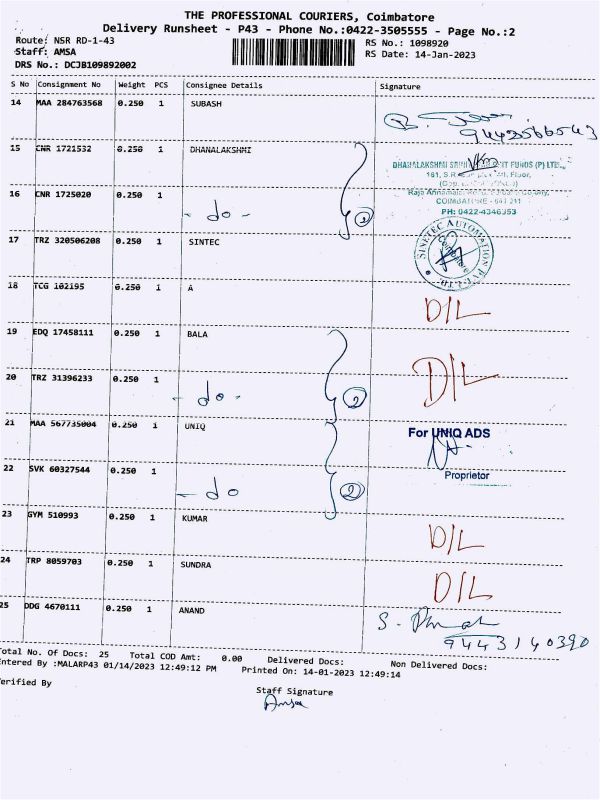 THE PROFESSIONAL COURIERS, Coimbatore
Delivery Runsheet - P43 - Phone No.:0422-3505555 - Page No.:2
Route: NSR RD-1-43
RS No.: 1098920
Staff: AMSA
RS Date: 14-Jan-2023
DRS No.: DCJB109892002
S No Consignment No Weight PCS Consignee Details Signature
14 MAA 284763568 0.250 1 SUBASH
15 CNR 1721532 0.250 1 DHANALAKSHMI
DHANALAKSHMI FUNDS (P) LTD.,
161, Floor,
16 CNR 1725020 0.250 1
- do - 2
COIMBATORE - 641 011
PH: 0422-4346353
17 TRZ 320506208 0.250 1 SINTEC
SINETEC AUTOMATION PVT. LTD.
Coimbatore
18 TCG 102195 0.250 1 A
D/L
19 EDQ 17458111 0.250 1 BALA
D/L
20 TRZ 31396233 0.250 1
- do - 2
21 MAA 567735004 0.250 1 UNIQ
For UNIQ ADS
Proprietor
22 SVK 60327544 0.250 1
- do 2
23 GYM 510993 0.250 1 KUMAR
D/L
24 TRP 8059703 0.250 1 SUNDRA
D/L
25 DDG 4670111 0.250 1 ANAND
9443140390
Total No. Of Docs: 25 Total COD Amt: 0.00 Delivered Docs: Non Delivered Docs:
Entered By :MALARP43 01/14/2023 12:49:12 PM Printed On: 14-01-2023 12:49:14
Verified By
Staff Signature
Amsa